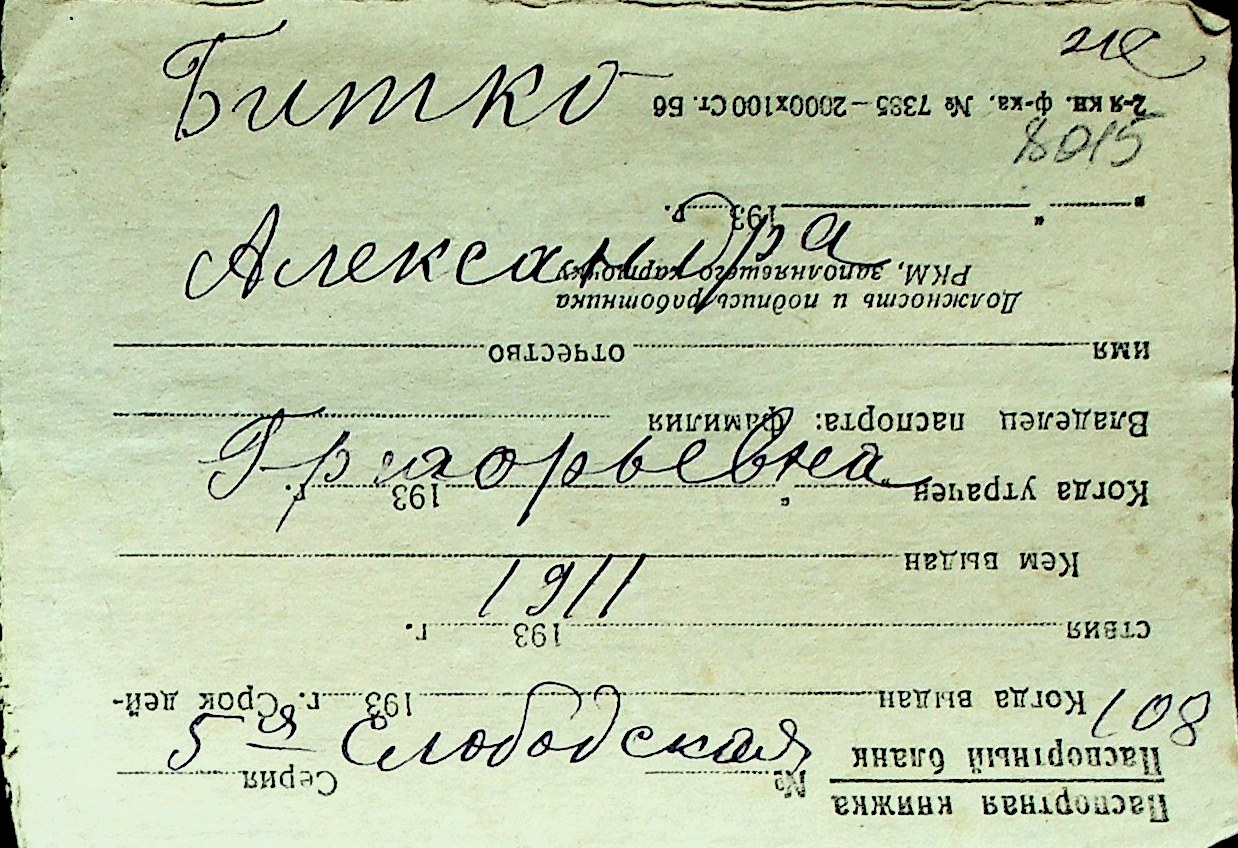 Битко
Александра
Григорьевна
1911
5 я Слободская 108
8015
Паспортная книжка
Паспортный бланк
№ Серия
Когда выдан 193 г. Срок дей-
ствия 193 г.
Кем выдан
Когда утрачен " 193 г.
Владелец паспорта: фамилия
имя отчество
Должность и подпись работника
РКМ, заполнявшего карточку
" " 193 г.
2-я кн. ф-ка. № 7385 — 2000х100 Ст. Б6